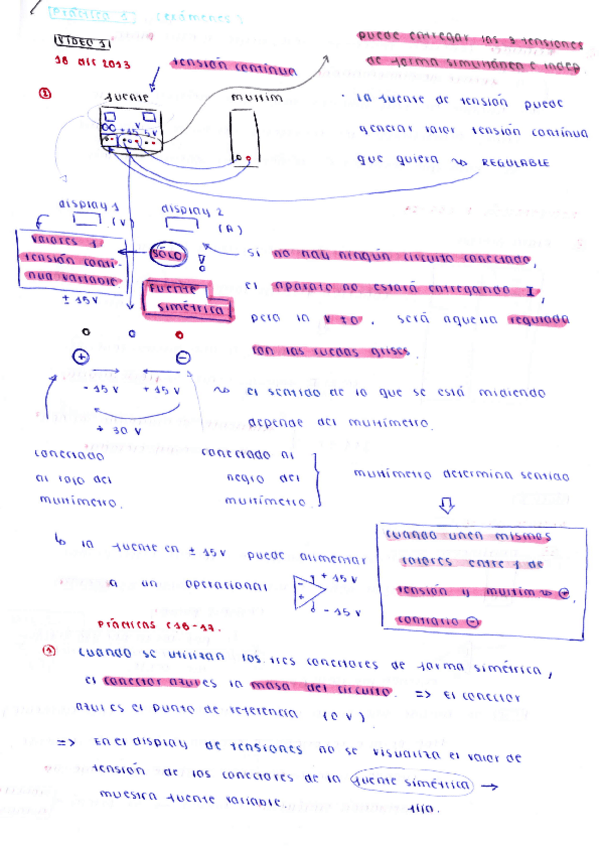 PRÁCTICA 1 (exámenes)
VIDEO 1
18 dic 2013
tensión continua
puede entregar las 3 tensiones
de forma simultánea e indep.
fuente
multim
± 15 V
display 1
(V)
display 2
(A)
· la fuente de tensión puede
generar valor tensión continua
que quiera ~> REGULABLE
valores 1
tensión conti-
nua variable
SÓLO
!
± 15V
fuente
simétrica
si no hay ningún circuito conectado,
el aparato no estará entregando I,
pero la V ≠ 0, será aquella regulada
con las ruedas grises.
+
-
- 15 V
+ 15 V
+ 30 V
~> el sentido de lo que se está midiendo
depende del multímetro.
conectado
al rojo del
multímetro.
conectado al
negro del
multímetro.
multímetro determina sentido
cuando unen mismos
valores entre 1 de
tensión y multim ~> +
contrario -
↳ la fuente en ± 15 V puede alimentar
a un operacional
- + 15 V
+ - 15 V
Prácticas (16-17.
(1) cuando se utilizan los tres conectores de forma simétrica,
el conector azul es la masa del circuito. => El conector
azul es el punto de referencia (0 V).
=> En el display de tensiones no se visualiza el valor de
tensión de los conectores de la fuente simétrica →
muestra fuente variable.
fija.